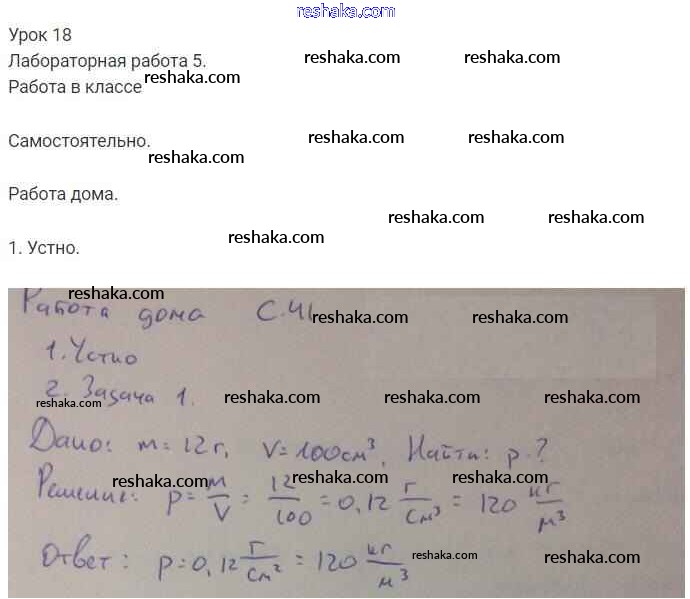 reshaka.com
Урок 18
reshaka.com reshaka.com
Лабораторная работа 5.
reshaka.com
Работа в классе
reshaka.com reshaka.com
Самостоятельно.
reshaka.com
Работа дома.
reshaka.com reshaka.com
reshaka.com
1. Устно.
reshaka.com
Работа дома С.41
reshaka.com reshaka.com
1. Устно
2. Задача 1.
reshaka.com reshaka.com reshaka.com reshaka.com
Дано: m = 12 г, V = 100 см³, Найти: p - ?
reshaka.com reshaka.com reshaka.com
Решение: p = m/V = 12/100 = 0,12 г/см³ = 120 кг/м³
reshaka.com reshaka.com
Ответ: p = 0,12 г/см² = 120 кг/м³